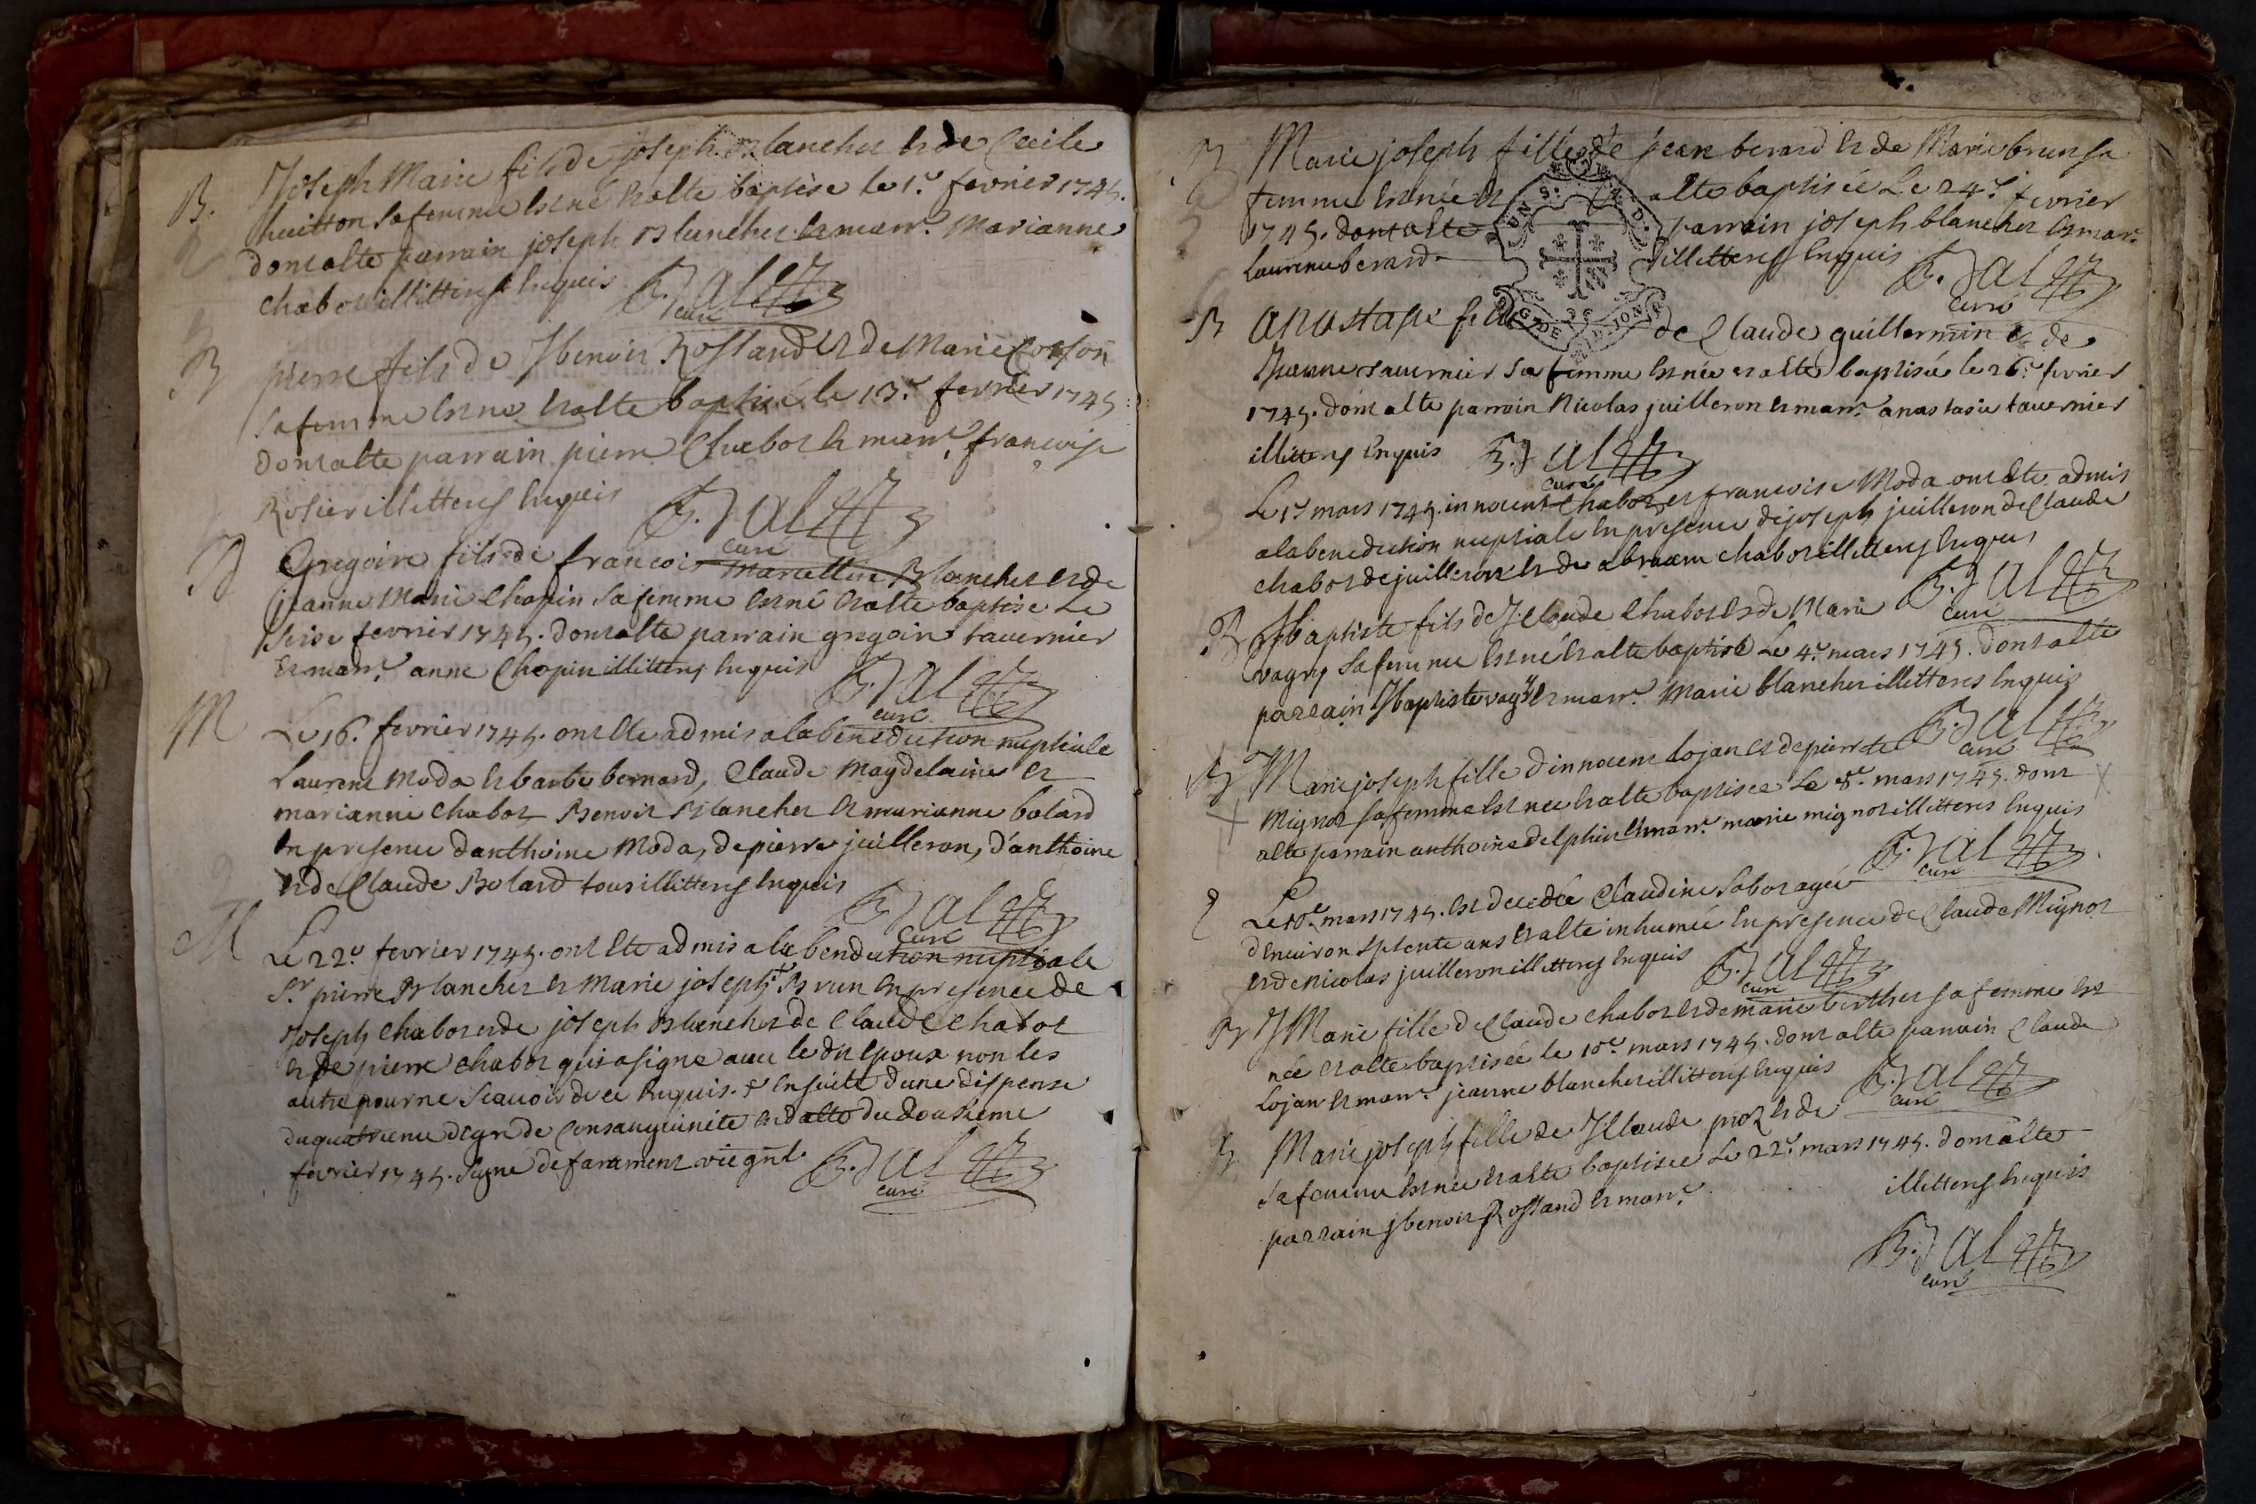 B. Joseph Marie fils de joseph Blanchet et de Cecile
huitton sa femme est né et a esté baptisé le 1.r fevrier 1745.
dont a esté parrain joseph Blanchet et marr.e Marianne
chabot illitterés enquis
curé
B pierre fils de J benoit Rostand et de Marie
sa femme est né et a esté baptisé le 13.e fevrier 1745
dont a esté parrain pierre Chabot et marr.e francoise
Rosier illitterés enquis
curé
B Gregoire fils de francois Marcellin Blanchet et de
jeanne Marie Chopin sa femme est né et a esté baptisé Le
seise fevrier 1745. dont a esté parrain gregoire tavernier
et marr.e anne Chopin illitterés enquis
curé
M Le 16.e fevrier 1745. ont esté admis a la benediction nuptiale
Laurent Moda et barbe bernard, Claude Magdelaine et
marianne chabot Benoit Blanchet et marianne bolard
en presence d'anthoine Moda, de pierre juilleron, d'anthoine
et de Claude Bolard tous illitterés enquis
curé
M Le 22.e fevrier 1745. ont esté admis a la benediction nuptiale
S.r pierre Blanchet et Marie joseph.te Brun en presence de
Joseph chabot et de joseph Blanchet de Claude Chabot
et de pierre chabot qui a signé avec le dit epoux non les
autre pour ne scavoir de ce enquis. et ensuite d'une dispense
du quatrieme degré de Consanguinité en date du dousieme
fevrier 1745. signé
curé
B Marie joseph fille de jean berard et de Marie brun sa
femme est née et a esté baptisée Le 24.e fevrier
1745. dont a esté parrain joseph blanchet et mar.e
Laurence berard illitterés enquis
curé
B anastasie fille de Claude guillermin et de
Jeanne tavernier sa femme est née et a esté baptisée le 26.e fevrier
1745. dont a esté parrain Nicolas juilleron et marr.e anastasie tavernier
illitterés enquis
curé
Le 1.r mars 1745. innocent Chabot et francoise Moda ont esté admis
a la benediction nuptiale en presence de joseph juilleron de Claude
chabot de juilleron et de abraam chabot illitterés enquis
curé
B J baptiste fils de J Claude Chabot et de Marie
vagny sa femme est né et a esté baptisé Le 4.e mars 1745. dont a esté
parrain J baptiste vagny et marr.e Marie blanchet illitterés enquis
curé
B Marie joseph fille d'innocent Lojan et de pierrette
Mignot sa femme est née et a esté baptisée Le 8.e mars 1745. dont
a esté parrain anthoine delphin et marr.e marie mignot illitterés enquis
curé
Le 10.e mars 1745. est decedée Claudine Sabot agée
d'environ septente ans et a esté inhumée en presence de Claude Mignot
et de nicolas juilleron illitterés enquis
curé
B J Marie fille de Claude chabot et de marie berthet sa femme est
née et a esté baptisée le 10.e mars 1745. dont a esté parrain Claude
Lojan et marr.e jeanne blanchet illitterés enquis
curé
B Marie joseph fille de J Claude piot et de
sa femme est née et a esté baptisée Le 22.e mars 1745. dont a esté
parrain J benoit Rostand et marr.e illitterés enquis
curé